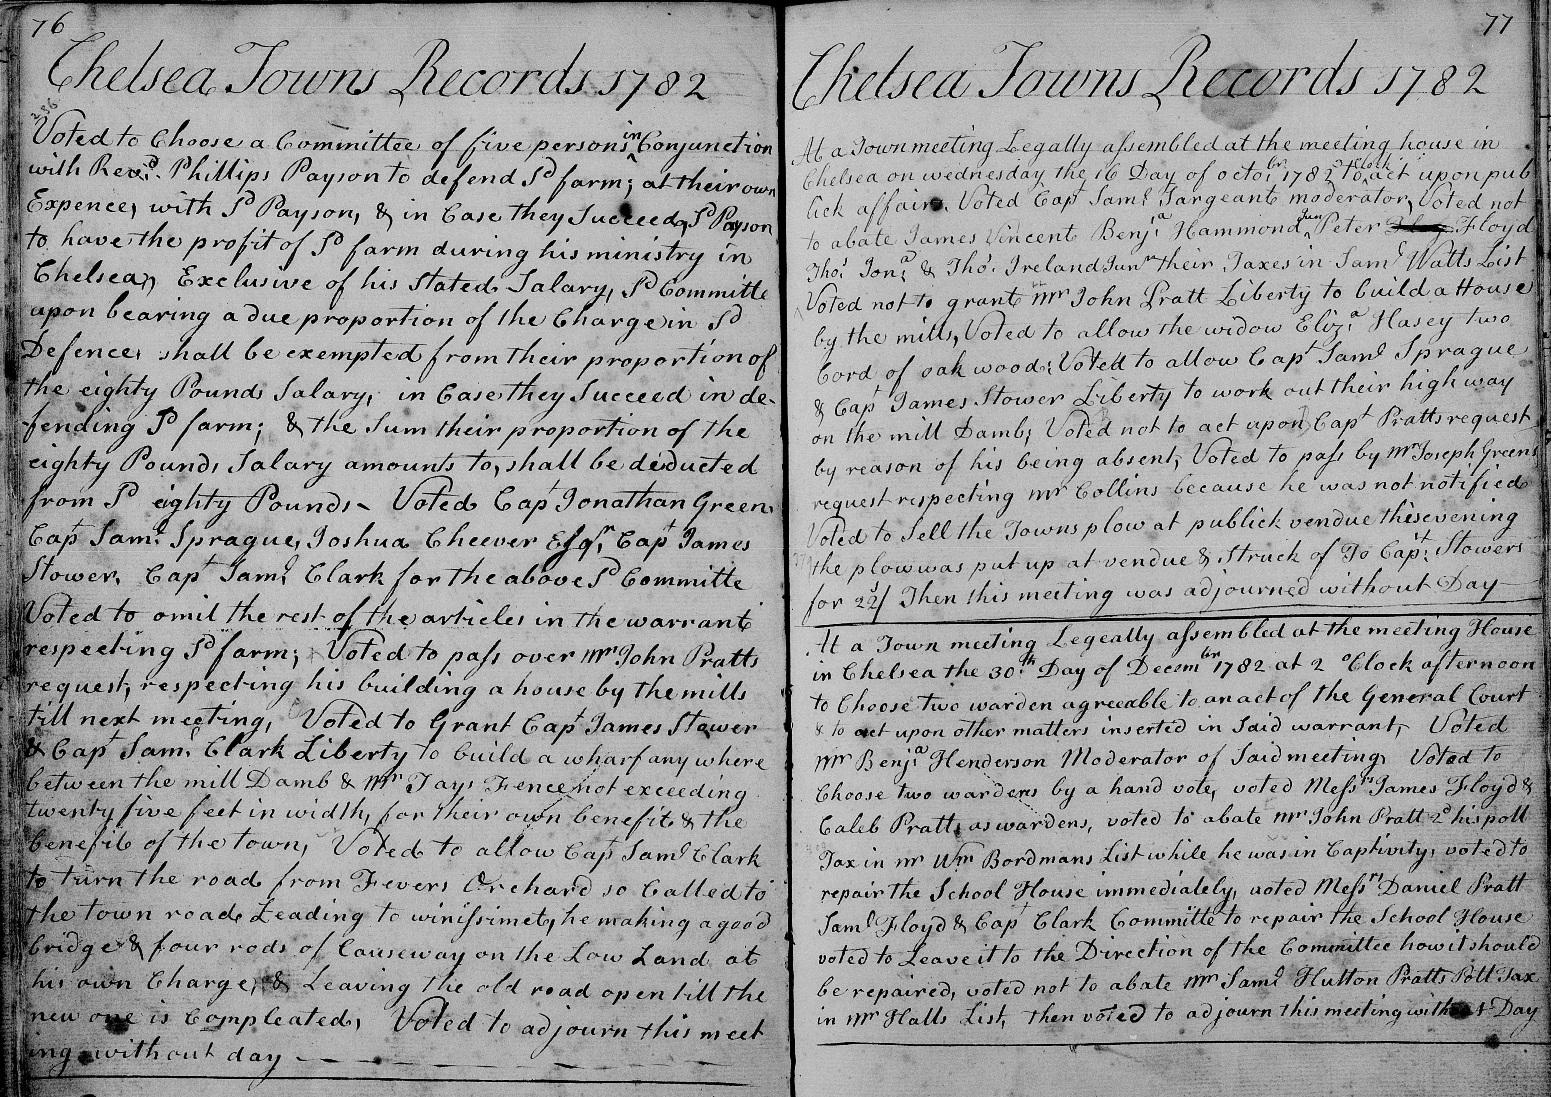 76
Chelsea Towns Records 1782
286
Voted to Choose a Committee of five persons in Conjunction
with Revd. Phillips Payson to defend Sd farm; at their own
Expence, with Sd Payson, & in Case they Succeed, Sd Payson
to have the profit of Sd farm during his ministry in
Chelsea, Exclusive of his Stated Salary, Sd Committe
upon bearing a due proportion of the Charge in Sd
Defence, shall be exempted from their proportion of
the eighty Pounds Salary, in Case they Succeed in de-
fending Sd farm; & the Sum their proportion of the
eighty Pounds Salary amounts to, shall be deducted
from Sd eighty Pounds - Voted Capt Jonathan Green
Capt Saml Sprague, Joshua Cheever Esqr, Capt James
Stower, Capt Saml Clark for the above Sd Committe
Voted to omit the rest of the articles in the warrant
respecting Sd farm; Voted to pass over Mr John Pratts
request, respecting his building a house by the mills
till next meeting, Voted to Grant Capt James Stower
& Capt Saml Clark Liberty to build a wharf any where
between the mill Damb & Mr Tays Fence not exceeding
twenty five feet in width, for their own benefit & the
benefit of the town, Voted to allow Capt Saml Clark
to turn the road from Fevers Orchard so Called to
the town road Leading to winissimet, he making a good
bridge & four rods of Causeway on the Low Land at
his own Charge, & Leaving the old road open till the
new one is Compleated, Voted to adjourn this meet
ing without day
77
Chelsea Towns Records 1782
At a Town meeting Legally assembled at the meeting house in
Chelsea on wednesday the 16 Day of octobr 1782 2 oClock to act upon pub
lick affairs. Voted Capt Saml Sargeant moderator, Voted not
to abate James Vincent Benja Hammond Jun Peter Floyd
Thos Jona & Thos. Ireland Junr their Taxes in Saml Watts List
Voted not to grant Mr John Pratt Liberty to build a House
by the mills, Voted to allow the widow Eliza Hasey two
Cord of oak wood; Voted to allow Capt Saml Sprague
& Capt James Stower Liberty to work out their high way
on the mill Damb; Voted not to act upon Capt Pratts request
by reason of his being absent; Voted to pass by Mr Joseph Greens
request respecting Mr Collins because he was not notified
Voted to Sell the Towns plow at publick vendue this evening
the plow was put up at vendue & Struck of To Capt. Stowers
for 22/ Then this meeting was adjourned without Day
At a Town meeting Legeally assembled at the meeting House
in Chelsea the 30th Day of Decembr 1782 at 2 oClock afternoon
to Choose two warden agreeable to an act of the General Court
& to act upon other matters inserted in Said warrant, Voted
Mr Benja Henderson Moderator of Said meeting, Voted to
Choose two wardens by a hand vote, voted Messrs James Floyd &
Caleb Pratt, as wardens, voted to abate Mr John Pratt 2d his poll
Tax in Mr Wm Bordmans List while he was in Captivity, voted to
repair the School House immediately, voted Messrs Daniel Pratt
Saml Floyd & Capt Clark Committe to repair the School House
voted to Leave it to the Direction of the Committee how it should
be repaired, voted not to abate Mr Saml Hutton Pratts Poll Tax
in Mr Halls List, then voted to adjourn this meeting without Day